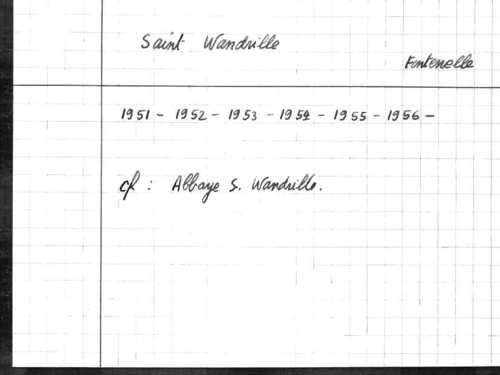 Saint Wandrille
Fontenelle
1951 - 1952 - 1953 - 1954 - 1955 - 1956 -
cf : Abbaye S. Wandrille.